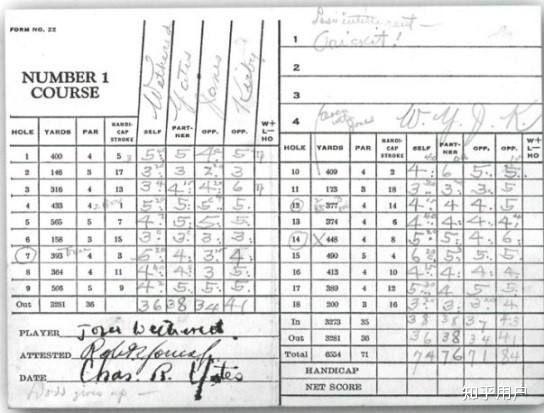 FORM NO. 22
NUMBER 1
COURSE
Wethered
Yates
Jones
Keeby
HOLE YARDS PAR HANDI-CAP STROKE SELF PART-NER OPP. OPP. W+ L— HO
1 400 4 5 5 5 4 5
2 146 3 17 3 3 2 3
3 316 4 13 3 4 4 6
4 433 4 1 5 5 5 5
5 565 5 7 4 5 5 5
6 158 3 15 3 3 3 3
7 393 4 3 6 4 3 4
8 364 4 11 4 4 3 5
9 506 5 9 4 5 5 5
Out 3281 36 36 38 34 41
PLAYER Joyce Wethered
ATTESTED Robt T Jones Jr
DATE Chas. R. Yates
Dodd gives up —
1
Cricket!
2
3
4
W. Y. J. K.
HOLE YARDS PAR HANDI-CAP STROKE SELF PART-NER OPP. OPP. W+ L— HO
10 409 4 2 4 6 5 5
11 173 3 18 3 3 3 5
12 377 4 14 4 4 4 5
13 374 4 6 4 4 4 4
14 448 4 8 5 5 4 6
15 490 5 4 6 5 5 5
16 413 4 10 4 4 4 4
17 389 4 12 5 4 5 5
18 200 3 16 3 3 3 4
In 3273 35 38 38 37 43
Out 3281 36 36 38 34 41
Total 6554 71 74 76 71 84
HANDICAP
NET SCORE
知乎用户